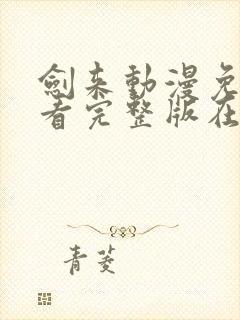 劍來動漫免
看完整版在
青菱